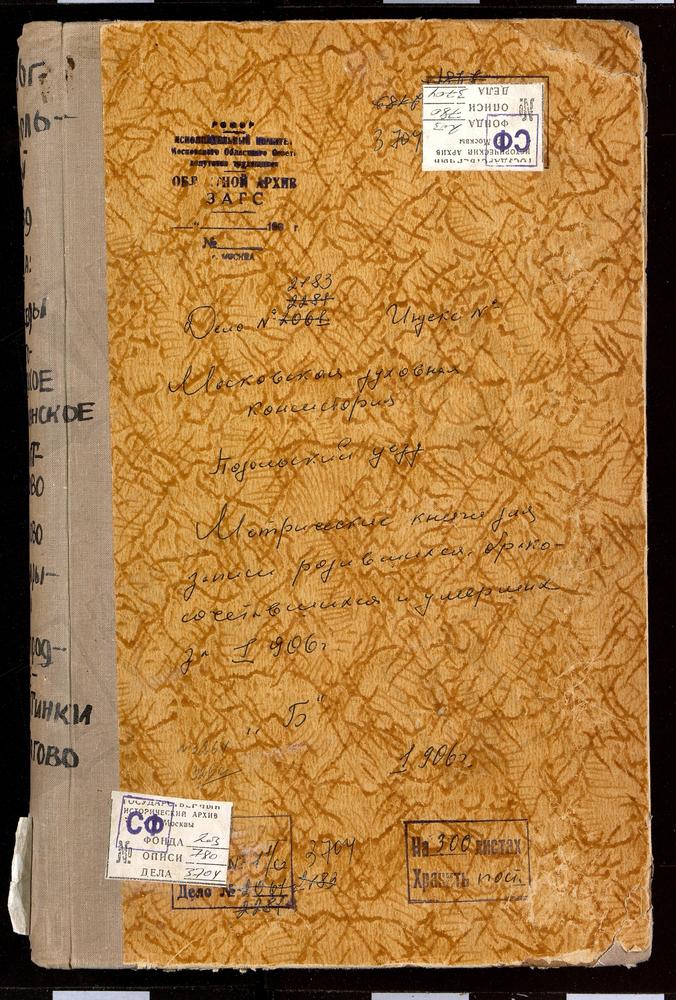 РСФСР
ИСПОЛНИТЕЛЬНЫЙ КОМИТЕТ
Московского Областного Совета
депутатов трудящихся
ОБЛ НОЙ АРХИВ
ЗАГС
"___"________196 г
№
г. МОСКВА
6878
3704
ГОСУДАРСТВЕННЫЙ
ИСТОРИЧЕСКИЙ АРХИВ
Москвы
СФ
ФОНДА 203
№ ОПИСИ 780
ДЕЛА 3704
2183
2281
Дело № 2061 Индекс №
Московская духовная
консистория
Подольский уезд
Метрические книги для
записи родившихся, брако-
сочетавшихся и умерших
за 1906г
"Б"
1906г.
ГОСУДАРСТВЕННЫЙ
ИСТОРИЧЕСКИЙ АРХИВ
Москвы
СФ
ФОНДА 203
№ ОПИСИ 780
ДЕЛА 3704
3704
Дело № 2061 2183
2281
На 300 листах
Хранить пост.
ОГ-
ЛЬ-
ЕРЫ
КОЕ
ИНСКОЕ
ВО
ВО
РЫ-
РОД-
ТИНКИ
ГОВО